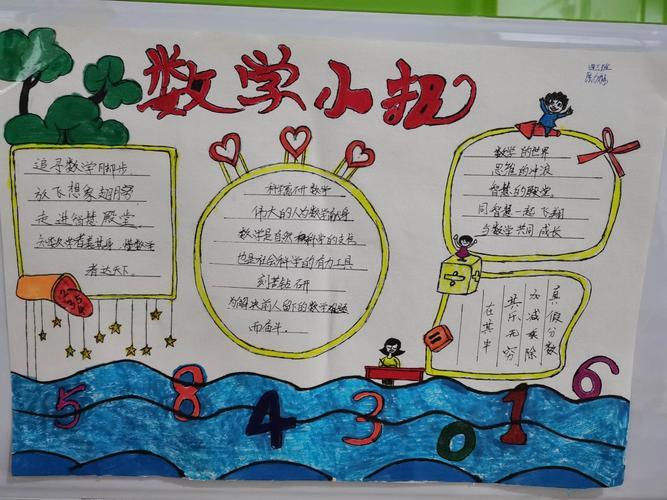 数学小报
四三班
追寻数学脚步
放飞想象翅膀
走进智慧殿堂
者达天下.
科荒研数学
伟大的人为数学献身
数学是自然科学的支柱
也是社会科学的有力工具
刻苦钻研
为解决前人留下的数学难题
而奋斗.
数学的世界
思维的冲浪
智慧的殿堂.
同智慧一起飞翔
与数学共同成长
真假分数
加减乘除
其乐无穷
在其中
2354
÷
=
5 8 4 3 0 1 6